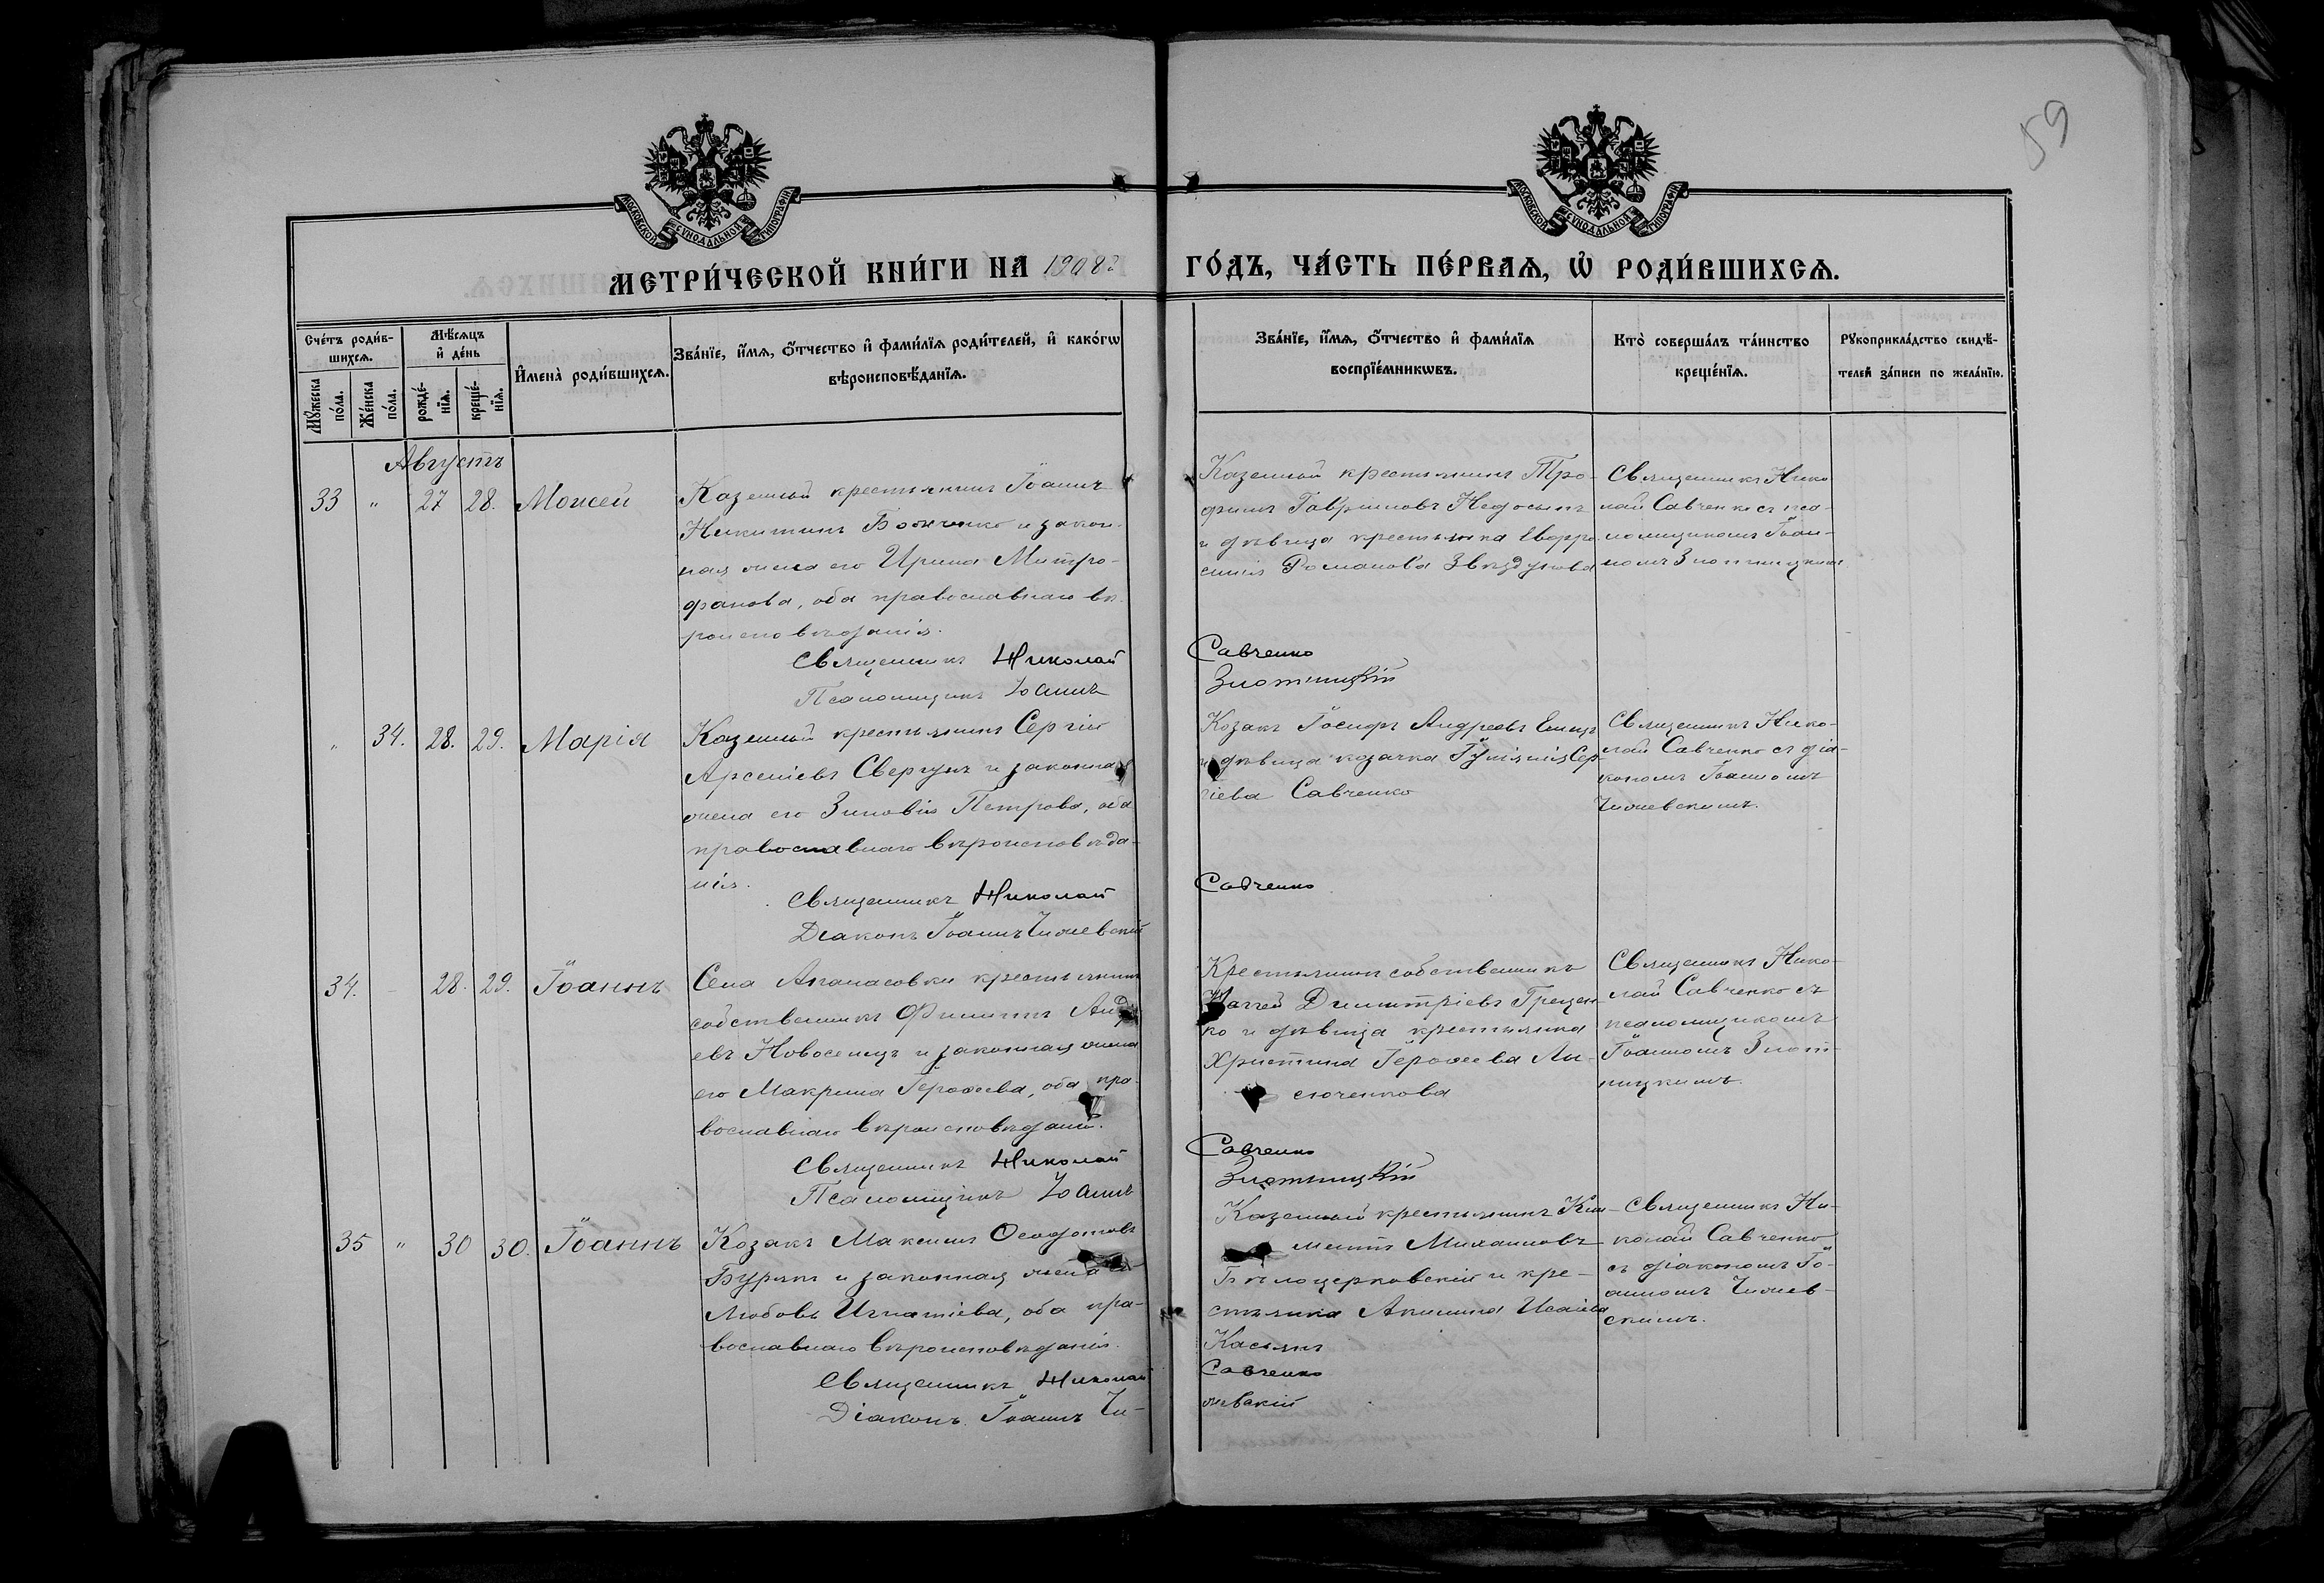 59
МОСКОВСКОЙ СѴНОДАЛЬНОЙ ТИПОГРАФІИ
МОСКОВСКОЙ СѴНОДАЛЬНОЙ ТИПОГРАФІИ
МЕТРИ́ЧЕСКОЙ КНИ́ГИ НА 1908 г ГО́ДЪ, ЧА́СТЬ ПЕ́РВАѦ, Ѡ҆ РОДИ́ВШИХСѦ.
Сче́тъ роди́в-
шихсѧ.
Мꙋ́жеска по́ла.
Же́нска по́ла.
Мѣ́сѧцъ
и҆ де́нь
рожде́-
нїѧ.
креще́-
нїѧ.
И҆мена̀ роди́вшихсѧ.
Зва́нїе, и҆́мѧ, ѻ҆́тчество и҆ фами́лїѧ роди́телей, и҆ како́гѡ
вѣроисповѣ́данїѧ.
Зва́нїе, и҆́мѧ, ѻ҆́тчество и҆ фами́лїѧ
воспрїе́мникѡвъ.
Кто̀ соверша́лъ та́инство
креще́нїѧ.
Рꙋкоприкла́дство свидѣ́-
телей за́писи по жела́нїю.
Августъ
33 " 27 28. Моисей
Казенный крестьянинъ Іоаннъ
Никитинъ Божченко и закон-
ная жена его Ирина Митро-
фанова, оба православнаго вѣ-
роисповѣданія.
Священникъ Николай
Псаломщикъ Іоаннъ
Казенный крестьянинъ Тро-
фимъ Гавриловъ Недосѣпъ
и дѣвица крестьянка Евфро-
синія Романова Звѣздунова
Савченко
Злотницкій
Священникъ Нико
лай Савченко съ пса-
ломщикомъ Іоан-
номъ Злотницкимъ
" 34. 28. 29. Марія
Казенный крестьянинъ Сергій
Арсеніевъ Свергунъ и законная
жена его Зиновія Петрова, оба
православнаго вѣроисповѣда-
нія.
Священникъ Николай
Діаконъ Іоаннъ Чижевскій
Козакъ Іосифъ Андреевъ Емецъ
и дѣвица козачка Іуліанія Сер-
гіева Савченко
Савченко
Священникъ Нико-
лай Савченко съ діа-
кономъ Іоанномъ
Чижевскимъ.
34. 28. 29. Іоаннъ
Села Апанасовки крестьянинъ
собственникъ Филиппъ Андре
евъ Новоселецъ и законная жена
его Макрина Іерофеева, оба пра-
вославнаго вѣроисповѣданія.
Священникъ Николай
Псаломщикъ Іоаннъ
Крестьянинъ собственникъ
Димитріевъ Грецен-
ко и дѣвица крестьянка
Христина Іерофеева Ли-
сюченкова
Савченко
Злотницкій
Священникъ Нико-
лай Савченко съ
псаломщикомъ
Іоанномъ Злот-
ницкимъ.
35 " 30 30. Іоаннъ
Козакъ Максимъ Ѳеодотовъ
Бурякъ и законная жена его
Любовь Игнатіева, оба пра-
вославнаго вѣроисповѣданія.
Священникъ Николай
Діаконъ Іоаннъ Чи-
Казенный крестьянинъ Кли-
ментъ Михаиловъ
Бѣлоцерковскій и кре-
стьянка Акилина Исаіева
Касьянъ
Савченко
жевскій
Священникъ Ни-
колай Савченко
съ діакономъ Іо-
анномъ Чижев-
скимъ.